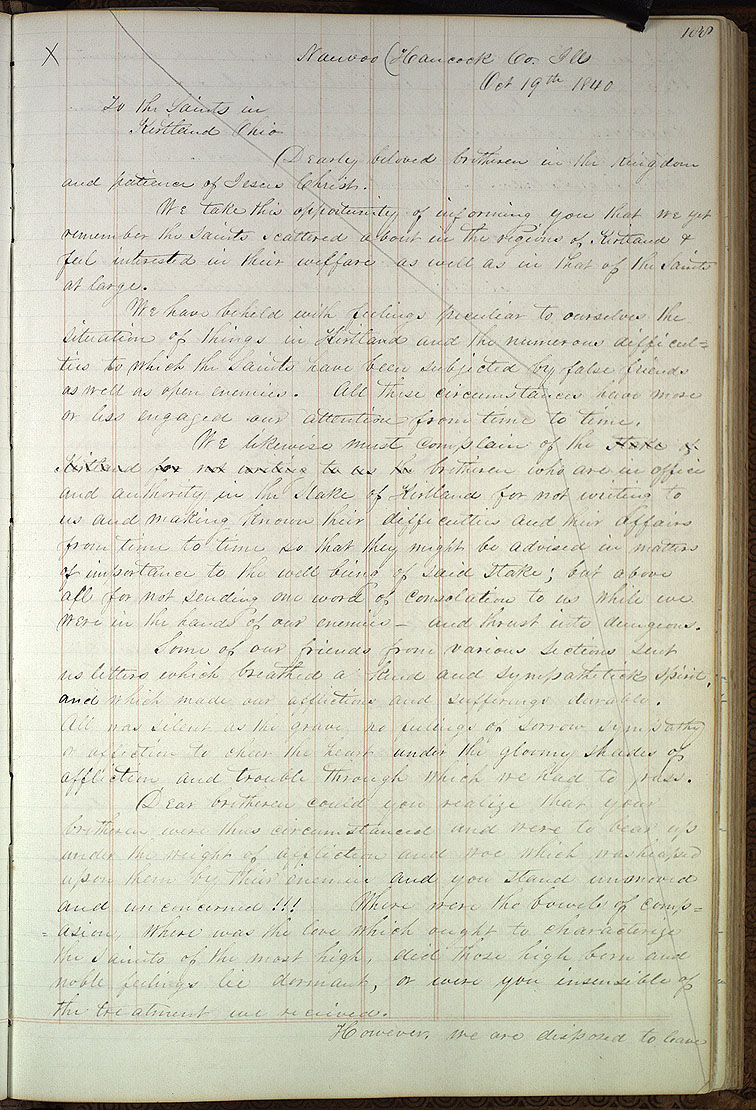 X
Nauvoo (Hancock Co. Ills
Oct 19th 1840
To the Saints in
Kirtland Ohio
Dearly beloved brotheren in the kingdom
and patience of Jesus Christ.
We take this oppotunity of informing you that we yet
remember the saints scattered about in the regions of Kirtland &
feel interested in their welfare as well as in that of the Saints
at large.
We have beheld with feelings peculiar to ourselves the
situation of things in Kirtland and the numerous difficul=
ties to which the Saints have been subjected by false friends
as well as open enemies. All these circumstances have more
or less engaged our attention from time to time.
We likewise must complain of the Stake of
Kirtland for not writing to us the brotheren who are in office
and authority in the Stake of Kirtland for not writing to
us and making known their difficulties and their affairs
from time to time so that they might be advised in matters
of importance to the well being of said Stake; but above
all for not sending one word of consolation to us while we
were in the hands of our enemies — and thrust into dungeons.
Some of our friends from various sections sent
us letters which breathed a kind and sympathetick spirit,
and which made our afflictions and sufferings durable.
All was silent as the grave, no feelings of sorrow sympathy
or affection to cheer the heart under the gloomy shades of
affliction and trouble through which we had to pass.
Dear brotheren could you realize that your
brotheren were thus circumstanced and were to bear up
under the weight of affliction and woe which was heaped
upon them by their enemies and you stand unmoved
and unconcerned!!! Where were the bowels of comp=
=asion, where was the love which ought to characterize
the saints of the most high, did those high born and
noble feelings lie dormant, or were you insensible of
the treatment we received.
However, we are disposed to leave